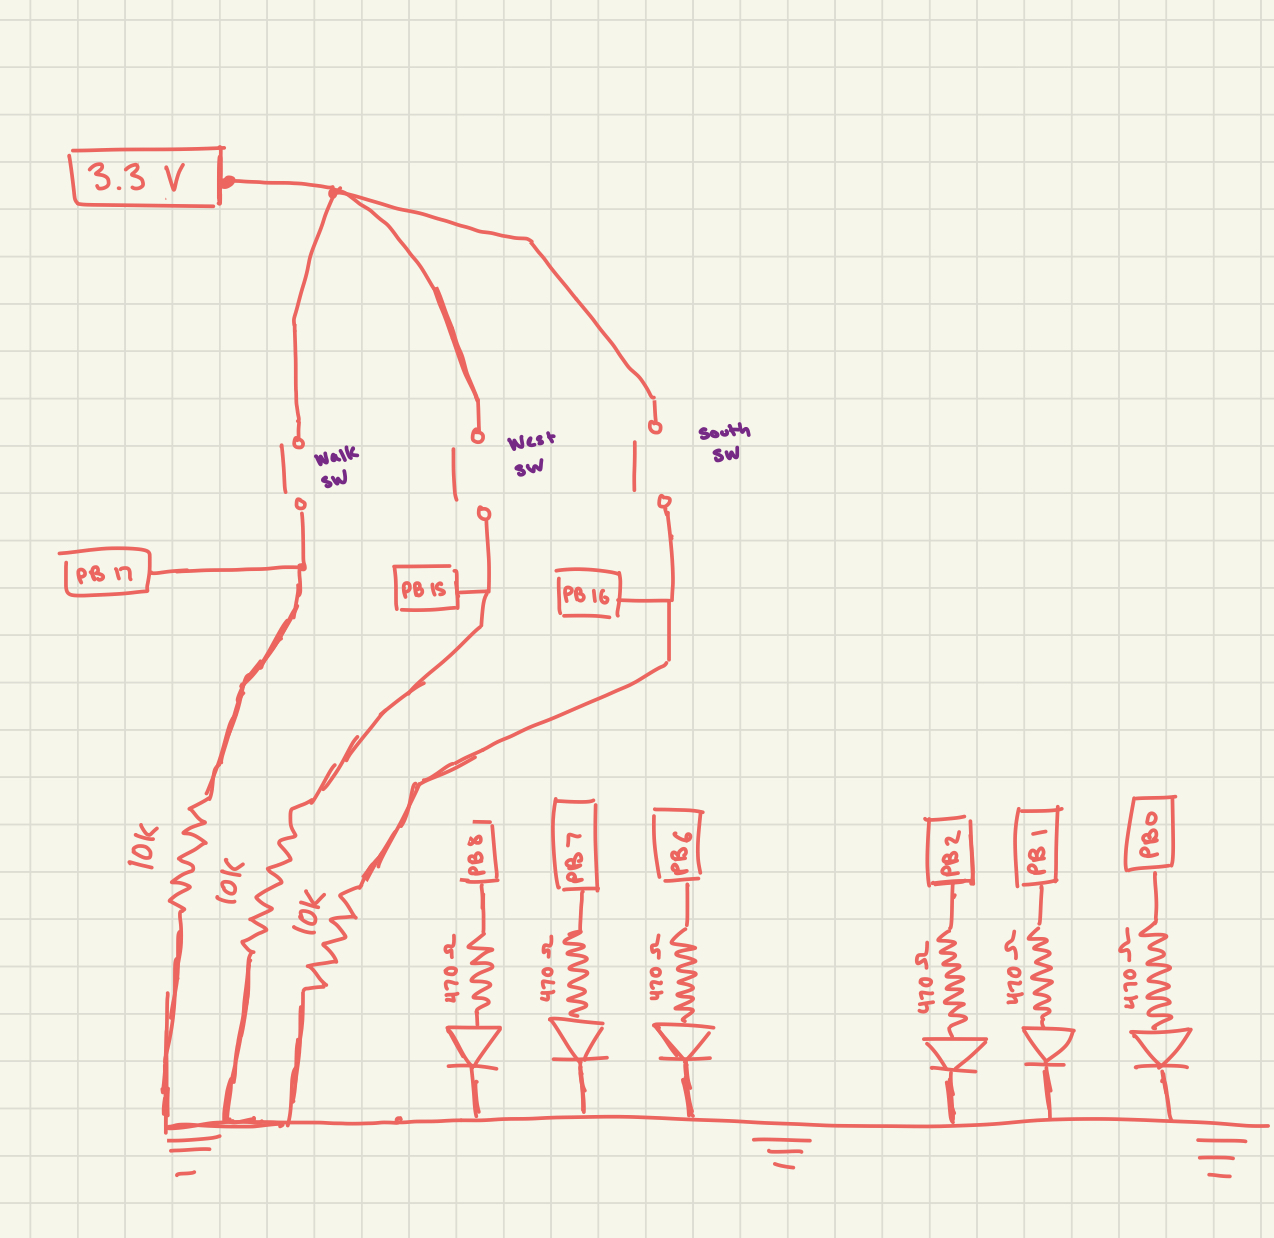 3.3 V
Walk
SW
West
SW
South
SW
PB 17
PB 15
PB 16
10K
10K
10K
PB 8
PB 7
PB 6
PB 2
PB 1
PB 0
470 Ω
470 Ω
470 Ω
470 Ω
470 Ω
470 Ω